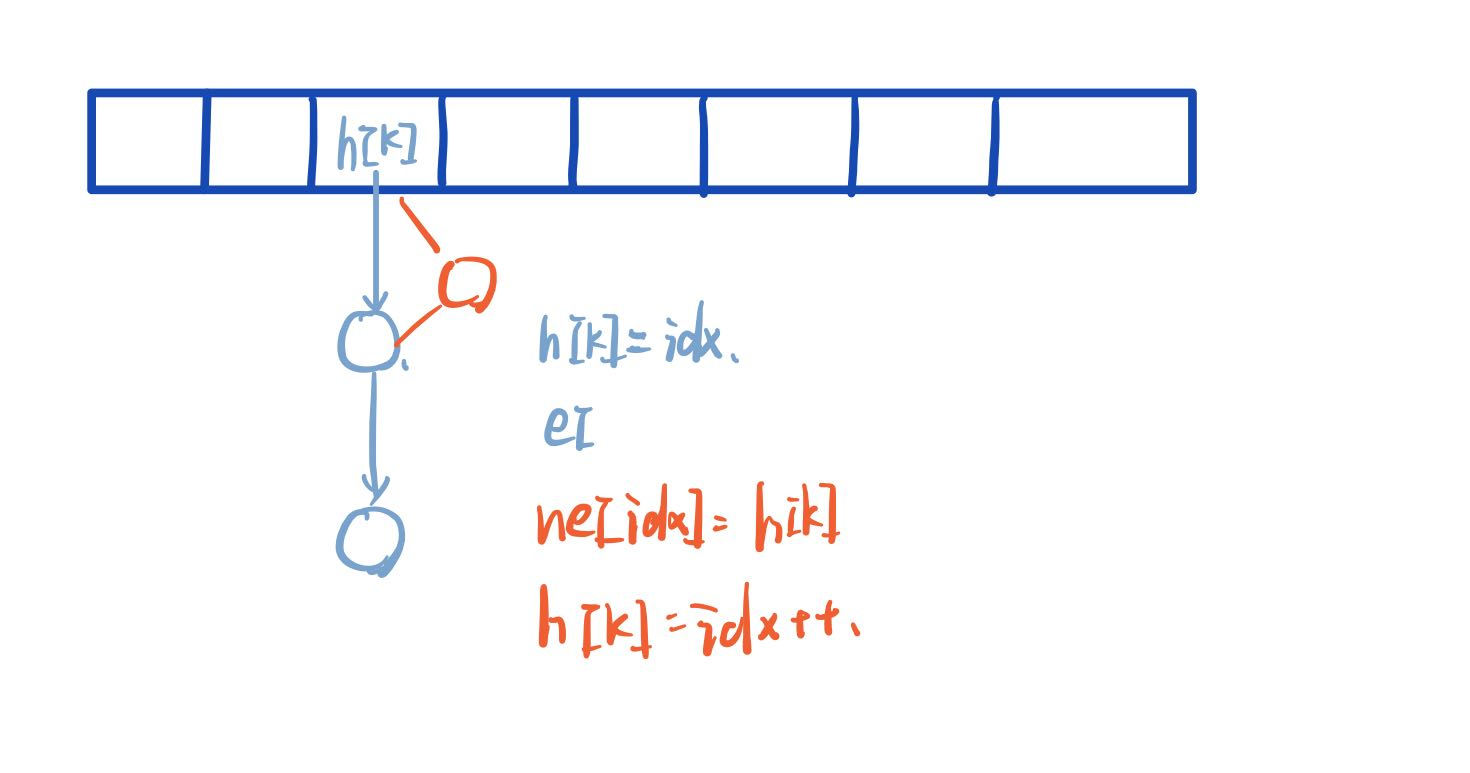 h[k]
h[k]=idx.
e[
ne[idx]=h[k]
h[k]=idx++.